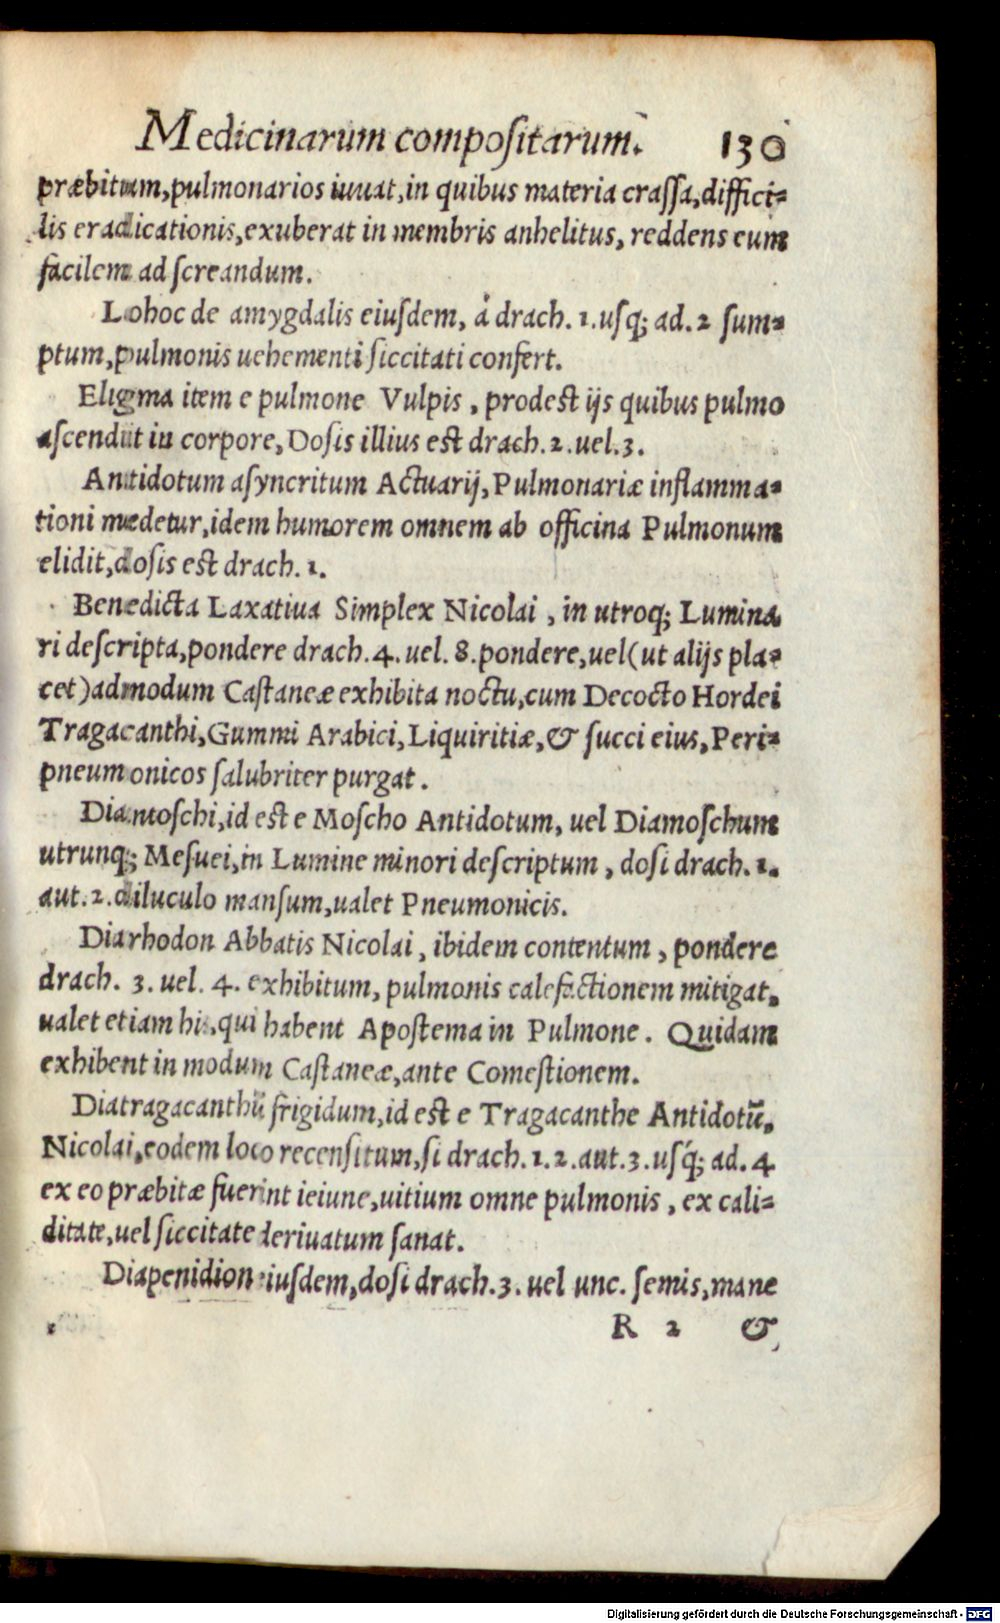 Medicinarum compositarum. 130
præbitum, pulmonarios iuuat, in quibus materia crassa, diffici-
lis eradicationis, exuberat in membris anhelitus, reddens eum
facilem ad screandum.
Lohoc de amygdalis eiusdem, á drach. 1. usq; ad. 2 sum-
ptum, pulmonis uehementi siccitati confert.
Eligma item e pulmone Vulpis, prodest ijs quibus pulmo
ascendit in corpore, Dosis illius est drach. 2. uel. 3.
Antidotum asyncritum Actuarij, Pulmonariæ inflamma-
tioni medetur, idem humorem omnem ab officina Pulmonum
elidit, dosis est drach. 1.
Benedicta Laxatiua Simplex Nicolai, in utroq; Lumina
ri descripta, pondere drach. 4. uel. 8. pondere, uel (ut alijs pla-
cet) admodum Castaneæ exhibita noctu, cum Decocto Hordei
Tragacanthi, Gummi Arabici, Liquiritiæ, & succi eius, Peri-
pneumonicos salubriter purgat.
Diamoschi, id est e Moscho Antidotum, uel Diamoschum
utrunq; Mesuei, in Lumine minori descriptum, dosi drach. 1.
aut. 2. diluculo mansum, ualet Pneumonicis.
Diarhodon Abbatis Nicolai, ibidem contentum, pondere
drach. 3. uel. 4. exhibitum, pulmonis calefactionem mitigat,
ualet etiam his, qui habent Apostema in Pulmone. Quidam
exhibent in modum Castaneæ, ante Comestionem.
Diatragacanthū frigidum, id est e Tragacanthe Antidotū,
Nicolai, eodem loco recensitum, si drach. 1. 2. aut. 3. usq́; ad. 4
ex eo præbitæ fuerint ieiune, uitium omne pulmonis, ex cali-
ditate, uel siccitate deriuatum sanat.
Diapenidion eiusdem, dosi drach. 3. uel unc. semis, mane
R 2 &
Digitalisierung gefördert durch die Deutsche Forschungsgemeinschaft - DFG